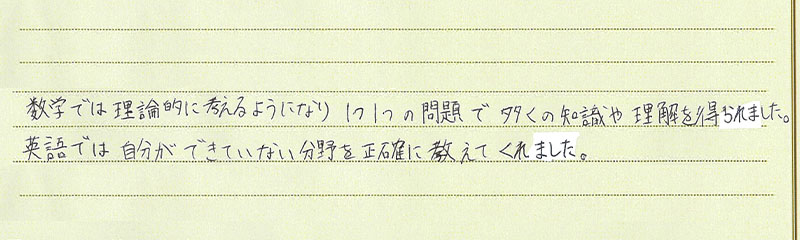 数学では理論的に考えるようになり1つ1つの問題で多くの知識や理解を得られました。
英語では自分ができていない分野を正確に教えてくれました。